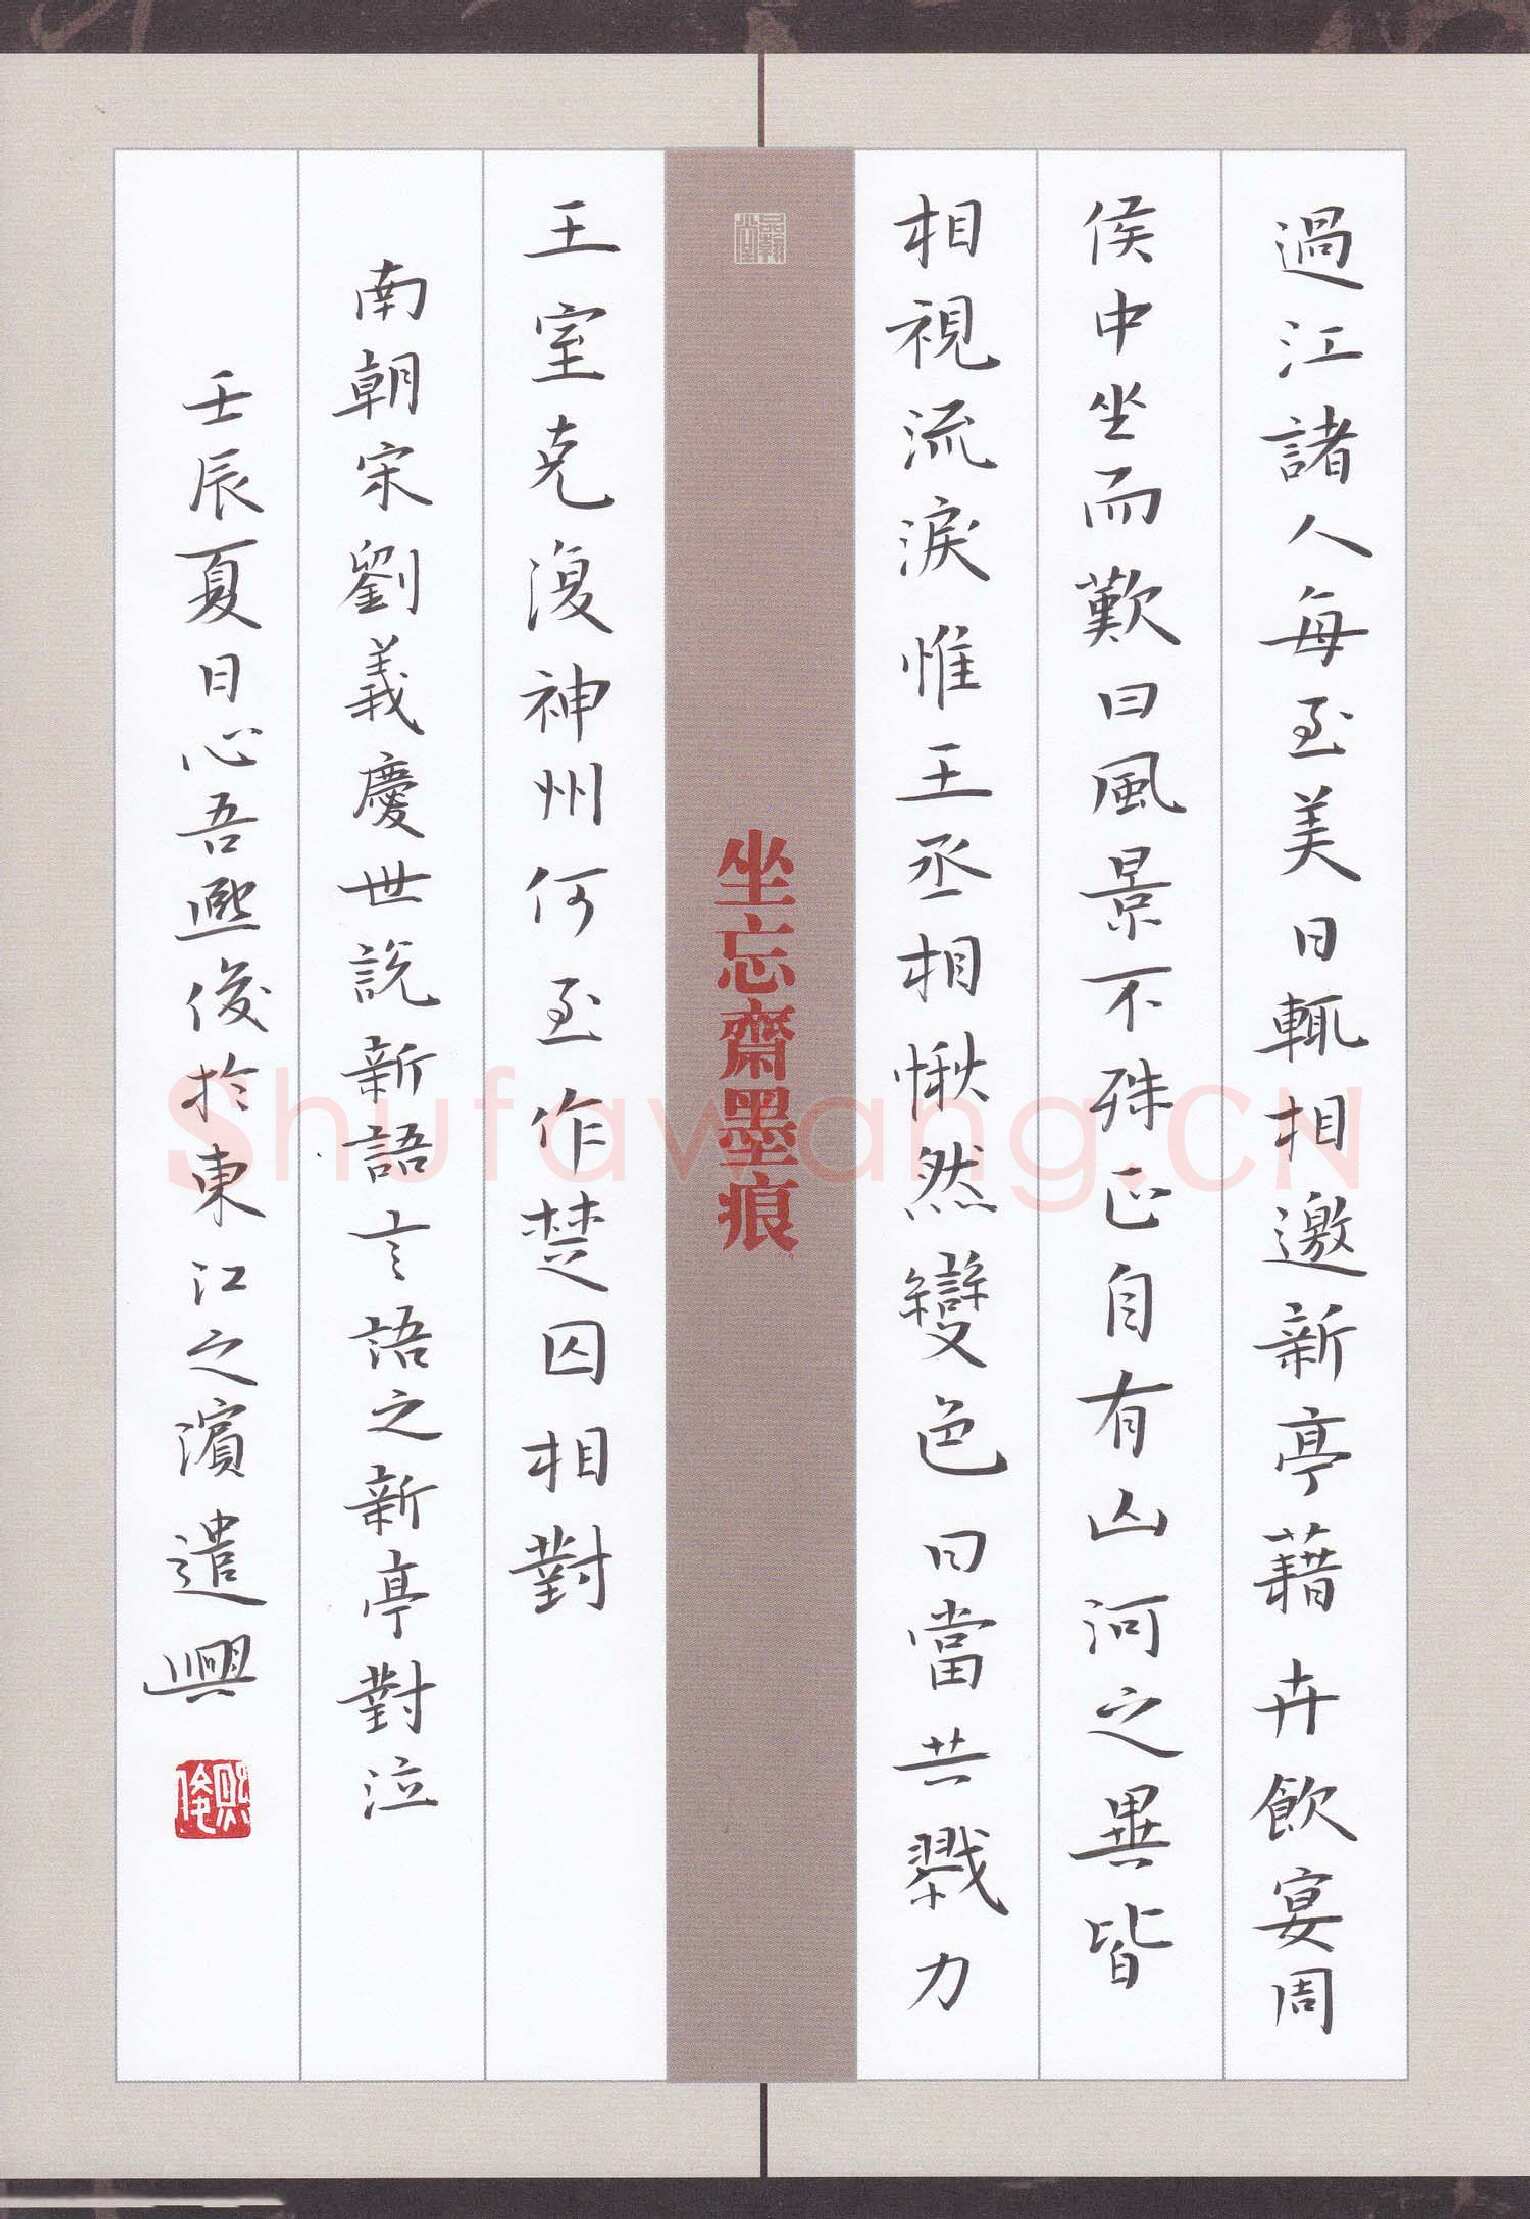 過江諸人每至美日輒相邀新亭藉卉飲宴周
侯中坐而歎曰風景不殊正自有山河之異皆
相視流淚惟王丞相愀然變色曰當共戮力
坐忘齋墨痕
王室克復神州何至作楚囚相對
南朝宋劉義慶世說新語言語之新亭對泣
壬辰夏日心吾熙俊於東江之濱遣興
熙俊
Shufawang.CN